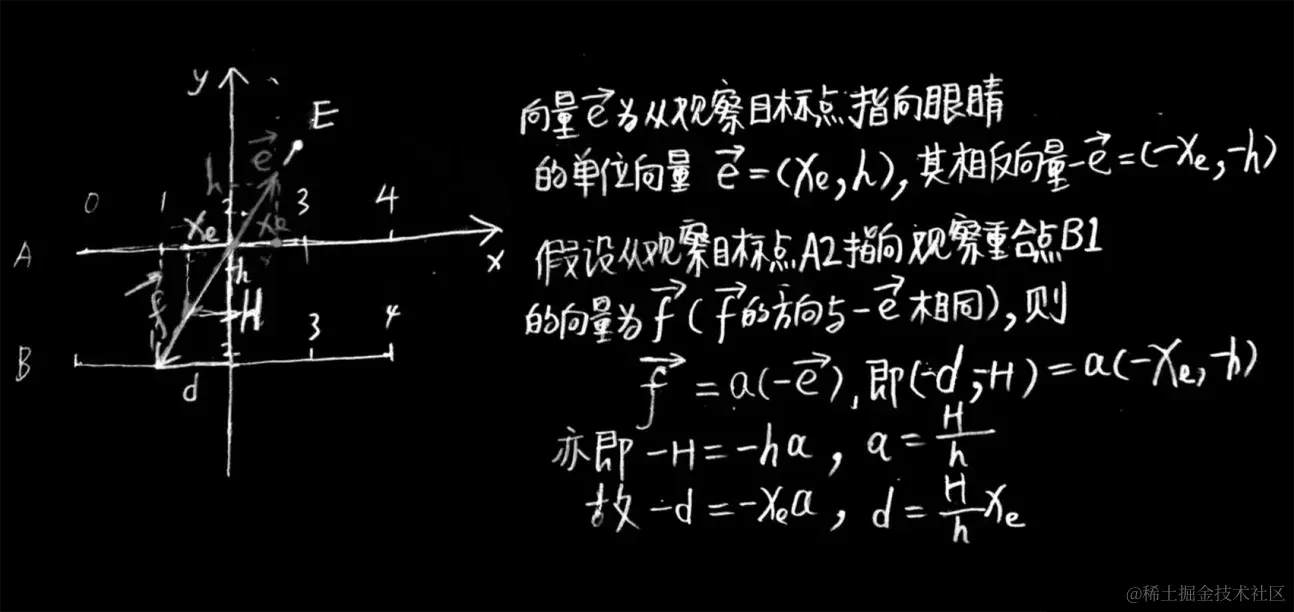 y
E
e
h
0 1 2 3 4
-xe xe
A
x
h
f
H
B
2 3 4
d
向量e为从观察目标点指向眼睛
的单位向量 e=(xe,h),其相反向量-e=(-xe,-h)
假设从观察目标点A2指向观察重合点B1
的向量为f(f的方向与-e相同),则
f=a(-e),即(-d,-H)=a(-xe,-h)
亦即 -H=-ha, a=H/h
故 -d=-xea, d=H/h xe
@稀土掘金技术社区